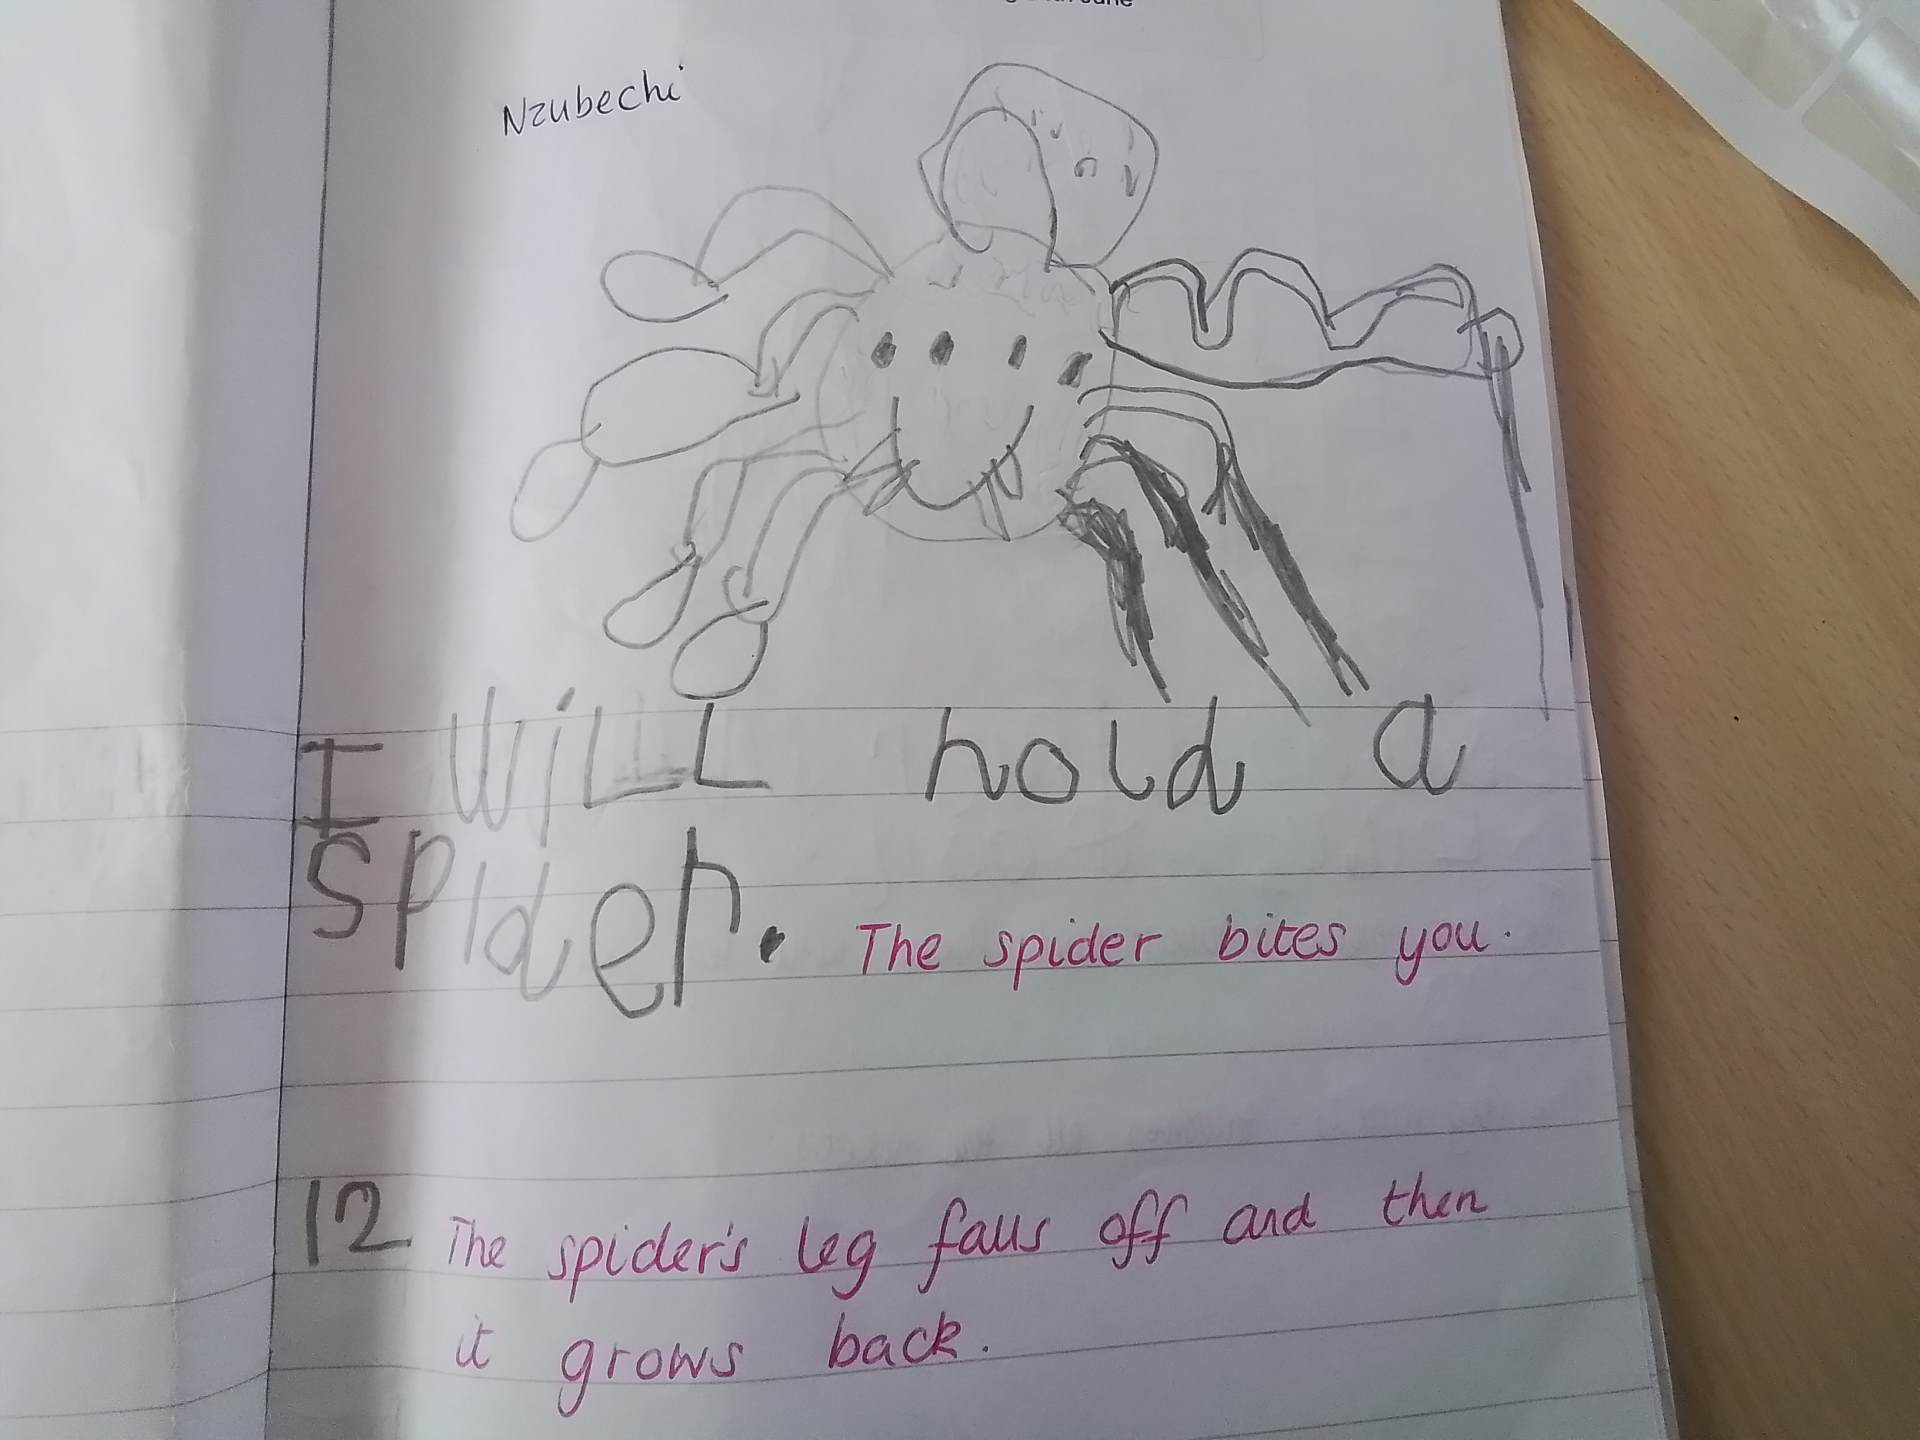 June
Nzubechi
I will hold a
SPIder. The spider bites you.
12 The spider's leg falls off and then
it grows back.